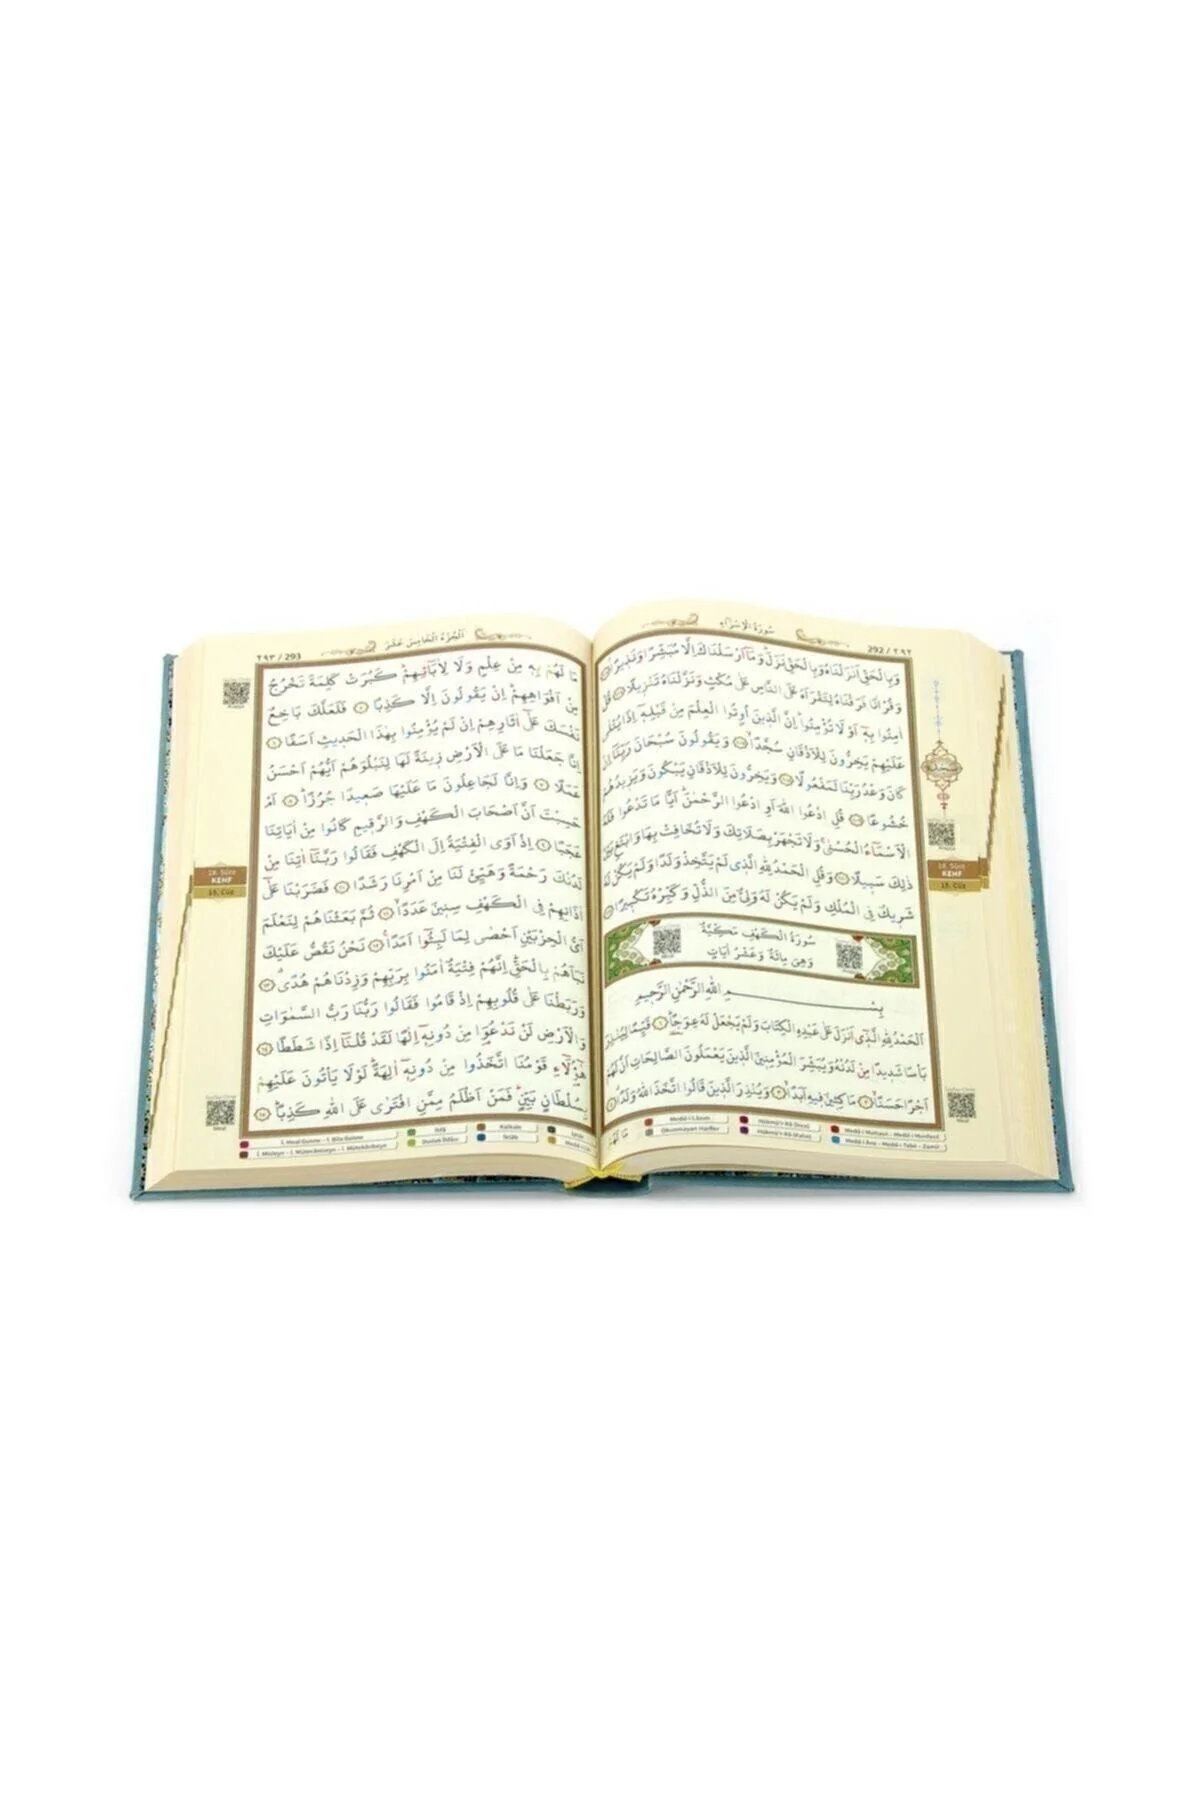 سُورَةُ الْاِسْرَاءِ
292 / ٢٩٢
وَبِالْحَقِّ اَنْزَلْنَاهُ وَبِالْحَقِّ نَزَلَ وَمَا اَرْسَلْنَاكَ اِلَّا مُبَشِّرًا وَنَذِيرًا
وَقُرْاٰنًا فَرَقْنَاهُ لِتَقْرَاَهُ عَلَى النَّاسِ عَلٰى مُكْثٍ وَنَزَّلْنَاهُ تَنْزِيلًا قُلْ
اٰمِنُوا بِهِ اَوْ لَا تُؤْمِنُوا اِنَّ الَّذِينَ اُوتُوا الْعِلْمَ مِنْ قَبْلِهِ اِذَا يُتْلٰى
عَلَيْهِمْ يَخِرُّونَ لِلْاَذْقَانِ سُجَّدًا وَيَقُولُونَ سُبْحَانَ رَبِّنَا اِنْ
كَانَ وَعْدُ رَبِّنَا لَمَفْعُولًا وَيَخِرُّونَ لِلْاَذْقَانِ يَبْكُونَ وَيَزِيدُهُمْ
خُشُوعًا قُلِ ادْعُوا اللّٰهَ اَوِ ادْعُوا الرَّحْمٰنَ اَيًّا مَا تَدْعُوا فَلَهُ
الْاَسْمَاءُ الْحُسْنٰى وَلَا تَجْهَرْ بِصَلَاتِكَ وَلَا تُخَافِتْ بِهَا وَابْتَغِ بَيْنَ
ذٰلِكَ سَبِيلًا وَقُلِ الْحَمْدُ لِلّٰهِ الَّذِي لَمْ يَتَّخِذْ وَلَدًا وَلَمْ يَكُنْ لَهُ
شَرِيكٌ فِي الْمُلْكِ وَلَمْ يَكُنْ لَهُ وَلِيٌّ مِنَ الذُّلِّ وَكَبِّرْهُ تَكْبِيرًا
سُورَةُ الْكَهْفِ مَكِّيَّةٌ
وَهِيَ مِائَةٌ وَعَشْرُ اٰيَاتٍ
بِسْمِ اللّٰهِ الرَّحْمٰنِ الرَّحِيمِ
اَلْحَمْدُ لِلّٰهِ الَّذِي اَنْزَلَ عَلٰى عَبْدِهِ الْكِتَابَ وَلَمْ يَجْعَلْ لَهُ عِوَجًا قَيِّمًا لِيُنْذِرَ
بَاْسًا شَدِيدًا مِنْ لَدُنْهُ وَيُبَشِّرَ الْمُؤْمِنِينَ الَّذِينَ يَعْمَلُونَ الصَّالِحَاتِ اَنَّ لَهُمْ
اَجْرًا حَسَنًا مَاكِثِينَ فِيهِ اَبَدًا وَيُنْذِرَ الَّذِينَ قَالُوا اتَّخَذَ اللّٰهُ وَلَدًا
مَا لَهُمْ
18. Sûre
KEHF
15. Cüz
Medd-i Lâzım
Okunmayan Harfler
Medd-i Muttasıl - Medd-i Munfasıl
اَلْجُزْءُ الْخَامِسَ عَشَرَ
٢٩٣ / 293
مَا لَهُمْ بِهِ مِنْ عِلْمٍ وَلَا لِاٰبَائِهِمْ كَبُرَتْ كَلِمَةً تَخْرُجُ
مِنْ اَفْوَاهِهِمْ اِنْ يَقُولُونَ اِلَّا كَذِبًا فَلَعَلَّكَ بَاخِعٌ
نَفْسَكَ عَلٰى اٰثَارِهِمْ اِنْ لَمْ يُؤْمِنُوا بِهٰذَا الْحَدِيثِ اَسَفًا
اِنَّا جَعَلْنَا مَا عَلَى الْاَرْضِ زِينَةً لَهَا لِنَبْلُوَهُمْ اَيُّهُمْ اَحْسَنُ
عَمَلًا وَاِنَّا لَجَاعِلُونَ مَا عَلَيْهَا صَعِيدًا جُرُزًا اَمْ
حَسِبْتَ اَنَّ اَصْحَابَ الْكَهْفِ وَالرَّقِيمِ كَانُوا مِنْ اٰيَاتِنَا
عَجَبًا اِذْ اَوَى الْفِتْيَةُ اِلَى الْكَهْفِ فَقَالُوا رَبَّنَا اٰتِنَا مِنْ
لَدُنْكَ رَحْمَةً وَهَيِّئْ لَنَا مِنْ اَمْرِنَا رَشَدًا فَضَرَبْنَا عَلٰى
اٰذَانِهِمْ فِي الْكَهْفِ سِنِينَ عَدَدًا ثُمَّ بَعَثْنَاهُمْ لِنَعْلَمَ
اَيُّ الْحِزْبَيْنِ اَحْصٰى لِمَا لَبِثُوا اَمَدًا نَحْنُ نَقُصُّ عَلَيْكَ
نَبَاَهُمْ بِالْحَقِّ اِنَّهُمْ فِتْيَةٌ اٰمَنُوا بِرَبِّهِمْ وَزِدْنَاهُمْ هُدًى
وَرَبَطْنَا عَلٰى قُلُوبِهِمْ اِذْ قَامُوا فَقَالُوا رَبُّنَا رَبُّ السَّمٰوَاتِ
وَالْاَرْضِ لَنْ نَدْعُوَا مِنْ دُونِهِ اِلٰهًا لَقَدْ قُلْنَا اِذًا شَطَطًا
هٰؤُلَاءِ قَوْمُنَا اتَّخَذُوا مِنْ دُونِهِ اٰلِهَةً لَوْلَا يَاْتُونَ عَلَيْهِمْ
بِسُلْطَانٍ بَيِّنٍ فَمَنْ اَظْلَمُ مِمَّنِ افْتَرٰى عَلَى اللّٰهِ كَذِبًا
18. Sûre
KEHF
15. Cüz
Kalkale